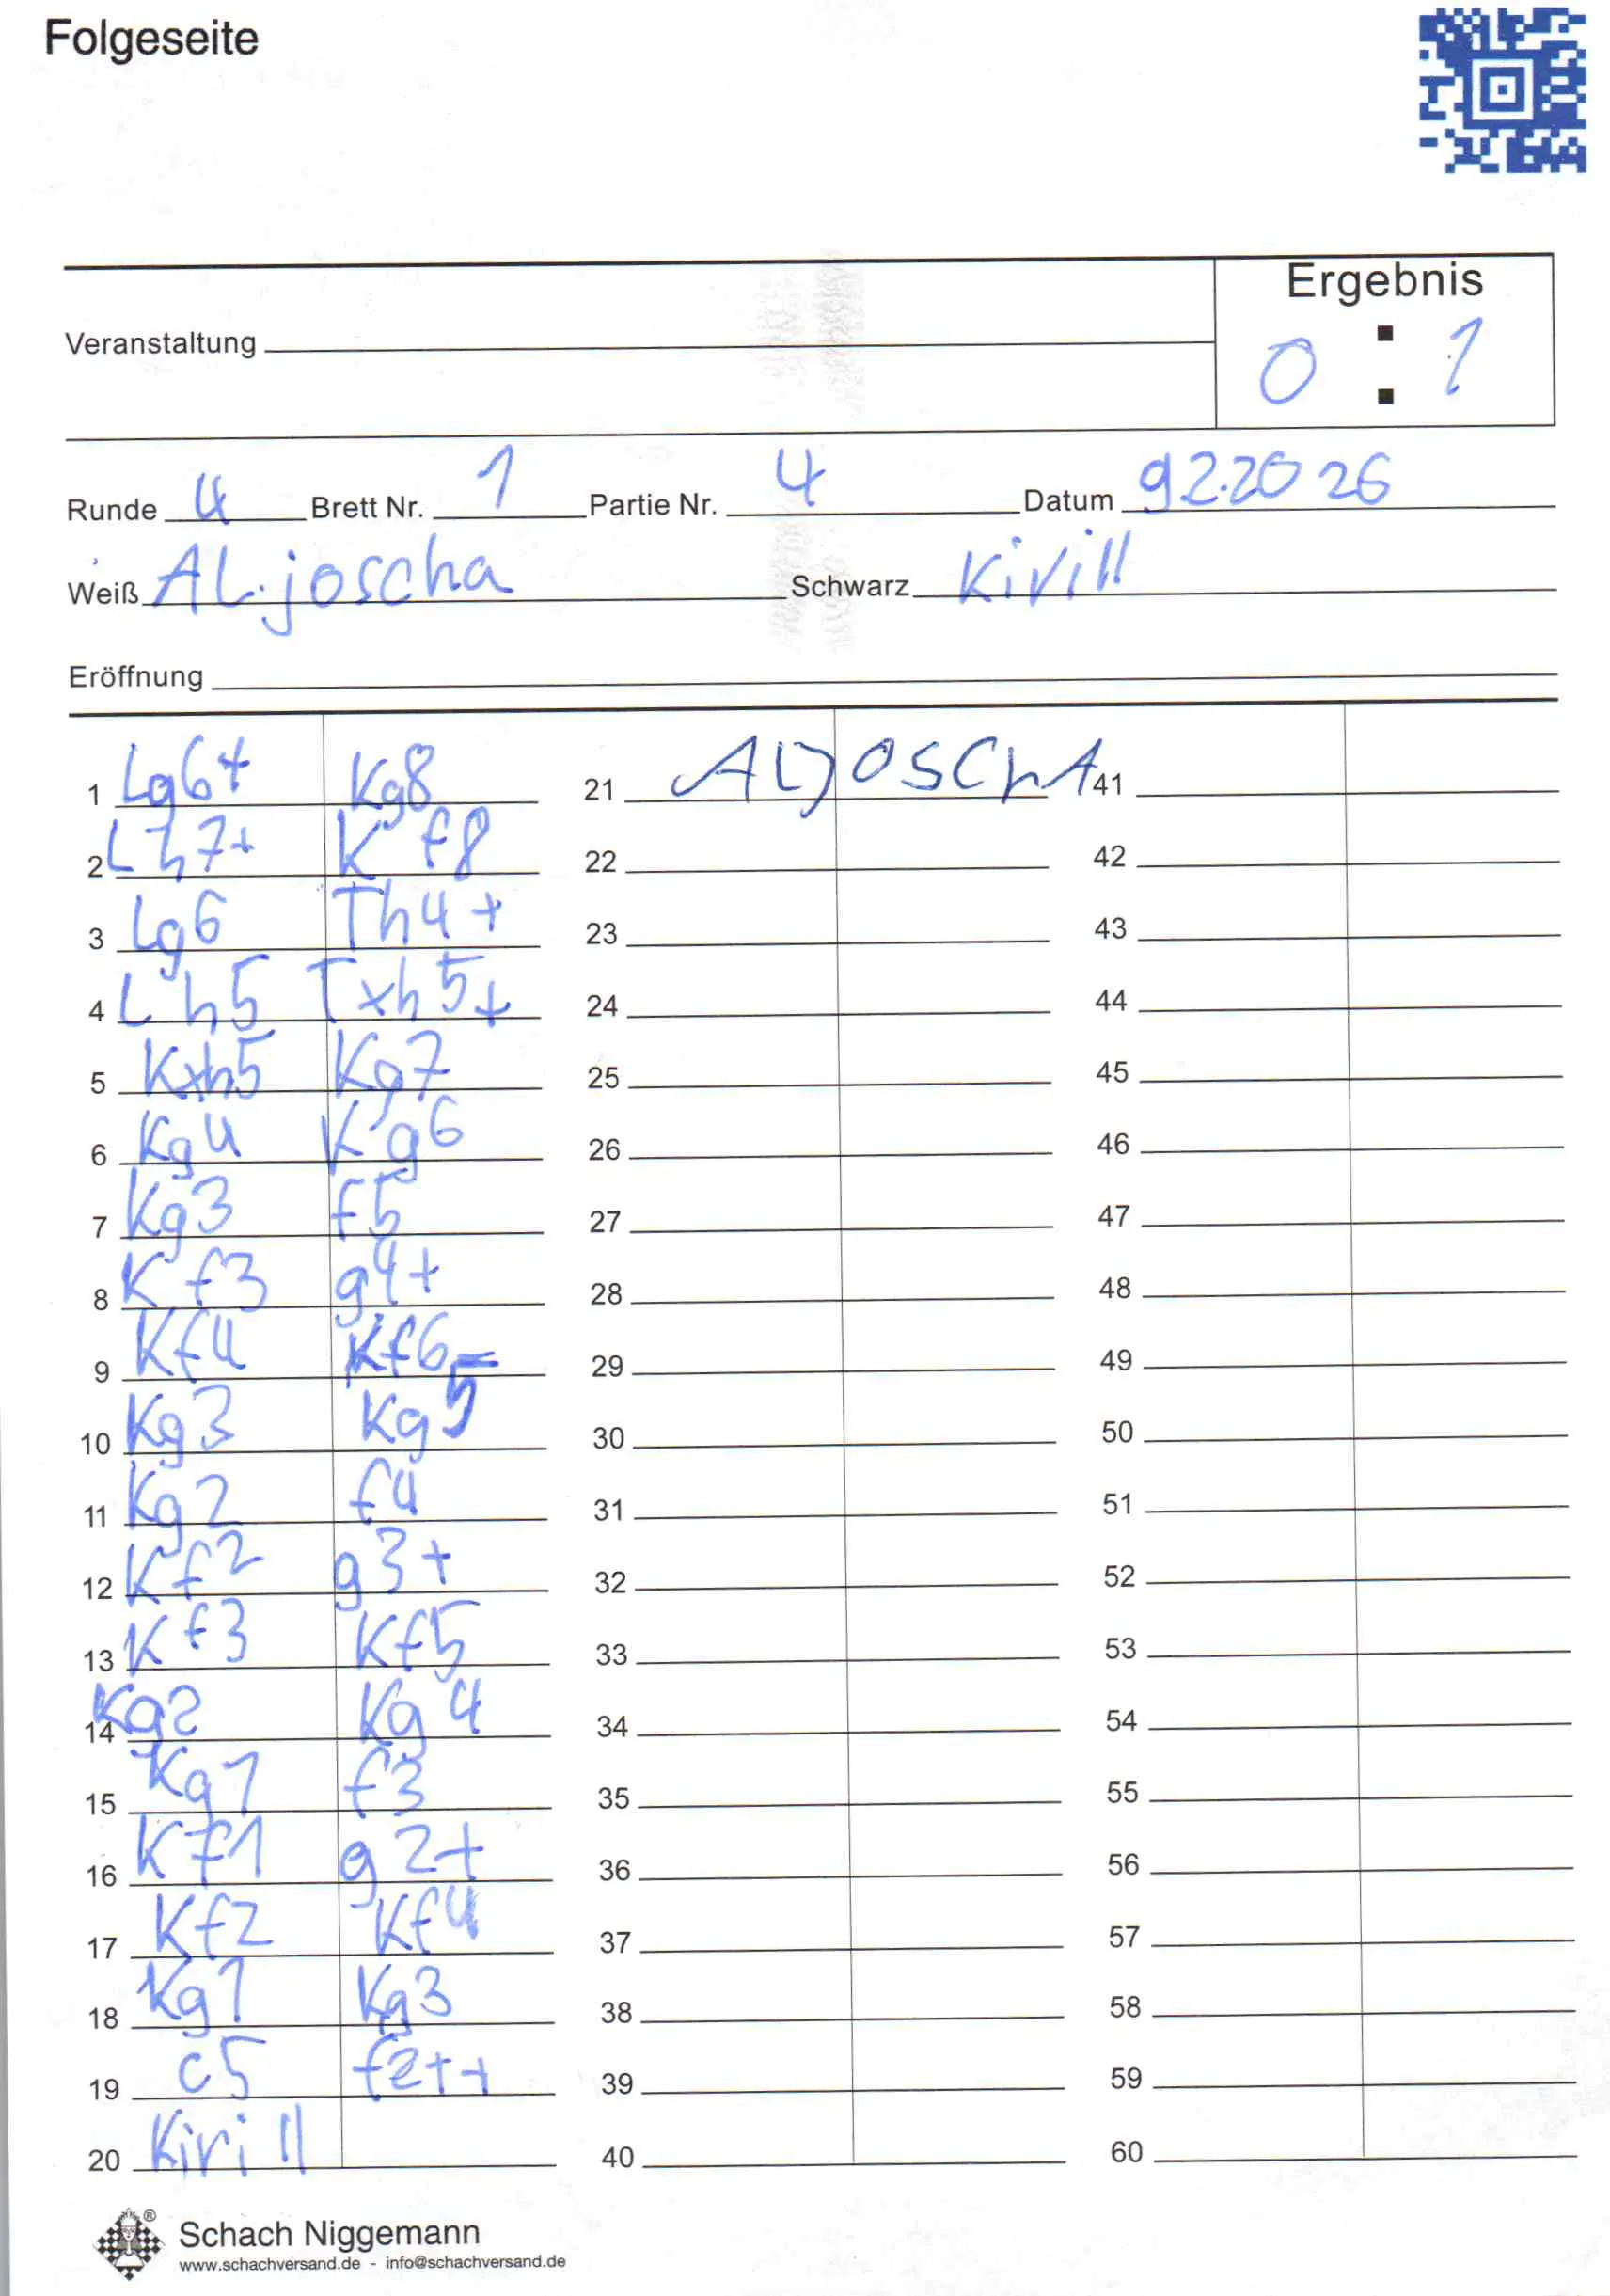 Folgeseite
Ergebnis
0 : 1
Veranstaltung
Runde 4 Brett Nr. 1 Partie Nr. 4 Datum 92.2026
Weiß AL.joscha Schwarz Kirill
Eröffnung
1 Lg6+ Kg8 21 ALJOSChA 41
2 Lh7+ Kf8 22 42
3 Lg6 Th4+ 23 43
4 Lh5 Txh5+ 24 44
5 Kxh5 Kg7 25 45
6 Kg4 Kg6 26 46
7 Kg3 f5 27 47
8 Kf3 g4+ 28 48
9 Kf4 Kf6 29 49
10 Kg3 Kg5 30 50
11 Kg2 f4 31 51
12 Kf2 g3+ 32 52
13 Kf3 Kf5 33 53
14 Kg2 Kg4 34 54
15 Kg1 f3 35 55
16 Kf1 g2+ 36 56
17 Kf2 Kf4 37 57
18 Kg1 Kg3 38 58
19 c5 f2++ 39 59
20 Kirill 40 60
Schach Niggemann
www.schachversand.de - info@schachversand.de